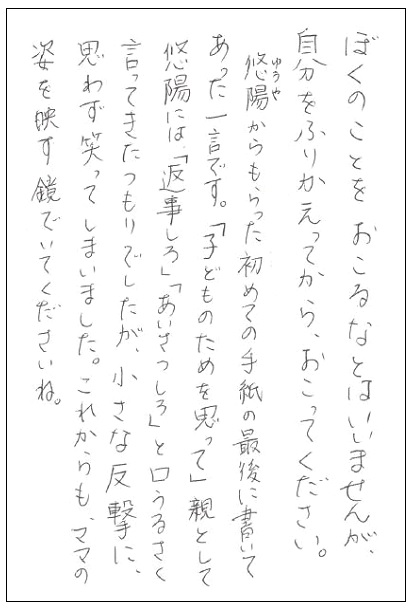 ぼくのことを おこるなとはいいませんが、
自分をふりかえってから、おこってください。
悠陽からもらった初めての手紙の最後に書いて
ゆうや
あった一言です。「子どものためを思って」親として
悠陽には、「返事しろ」「あいさつしろ」と口うるさく
言ってきたつもりでしたが、小さな反撃に、
思わず笑ってしまいました。これからも、ママの
姿を映す鏡でいてくださいね。